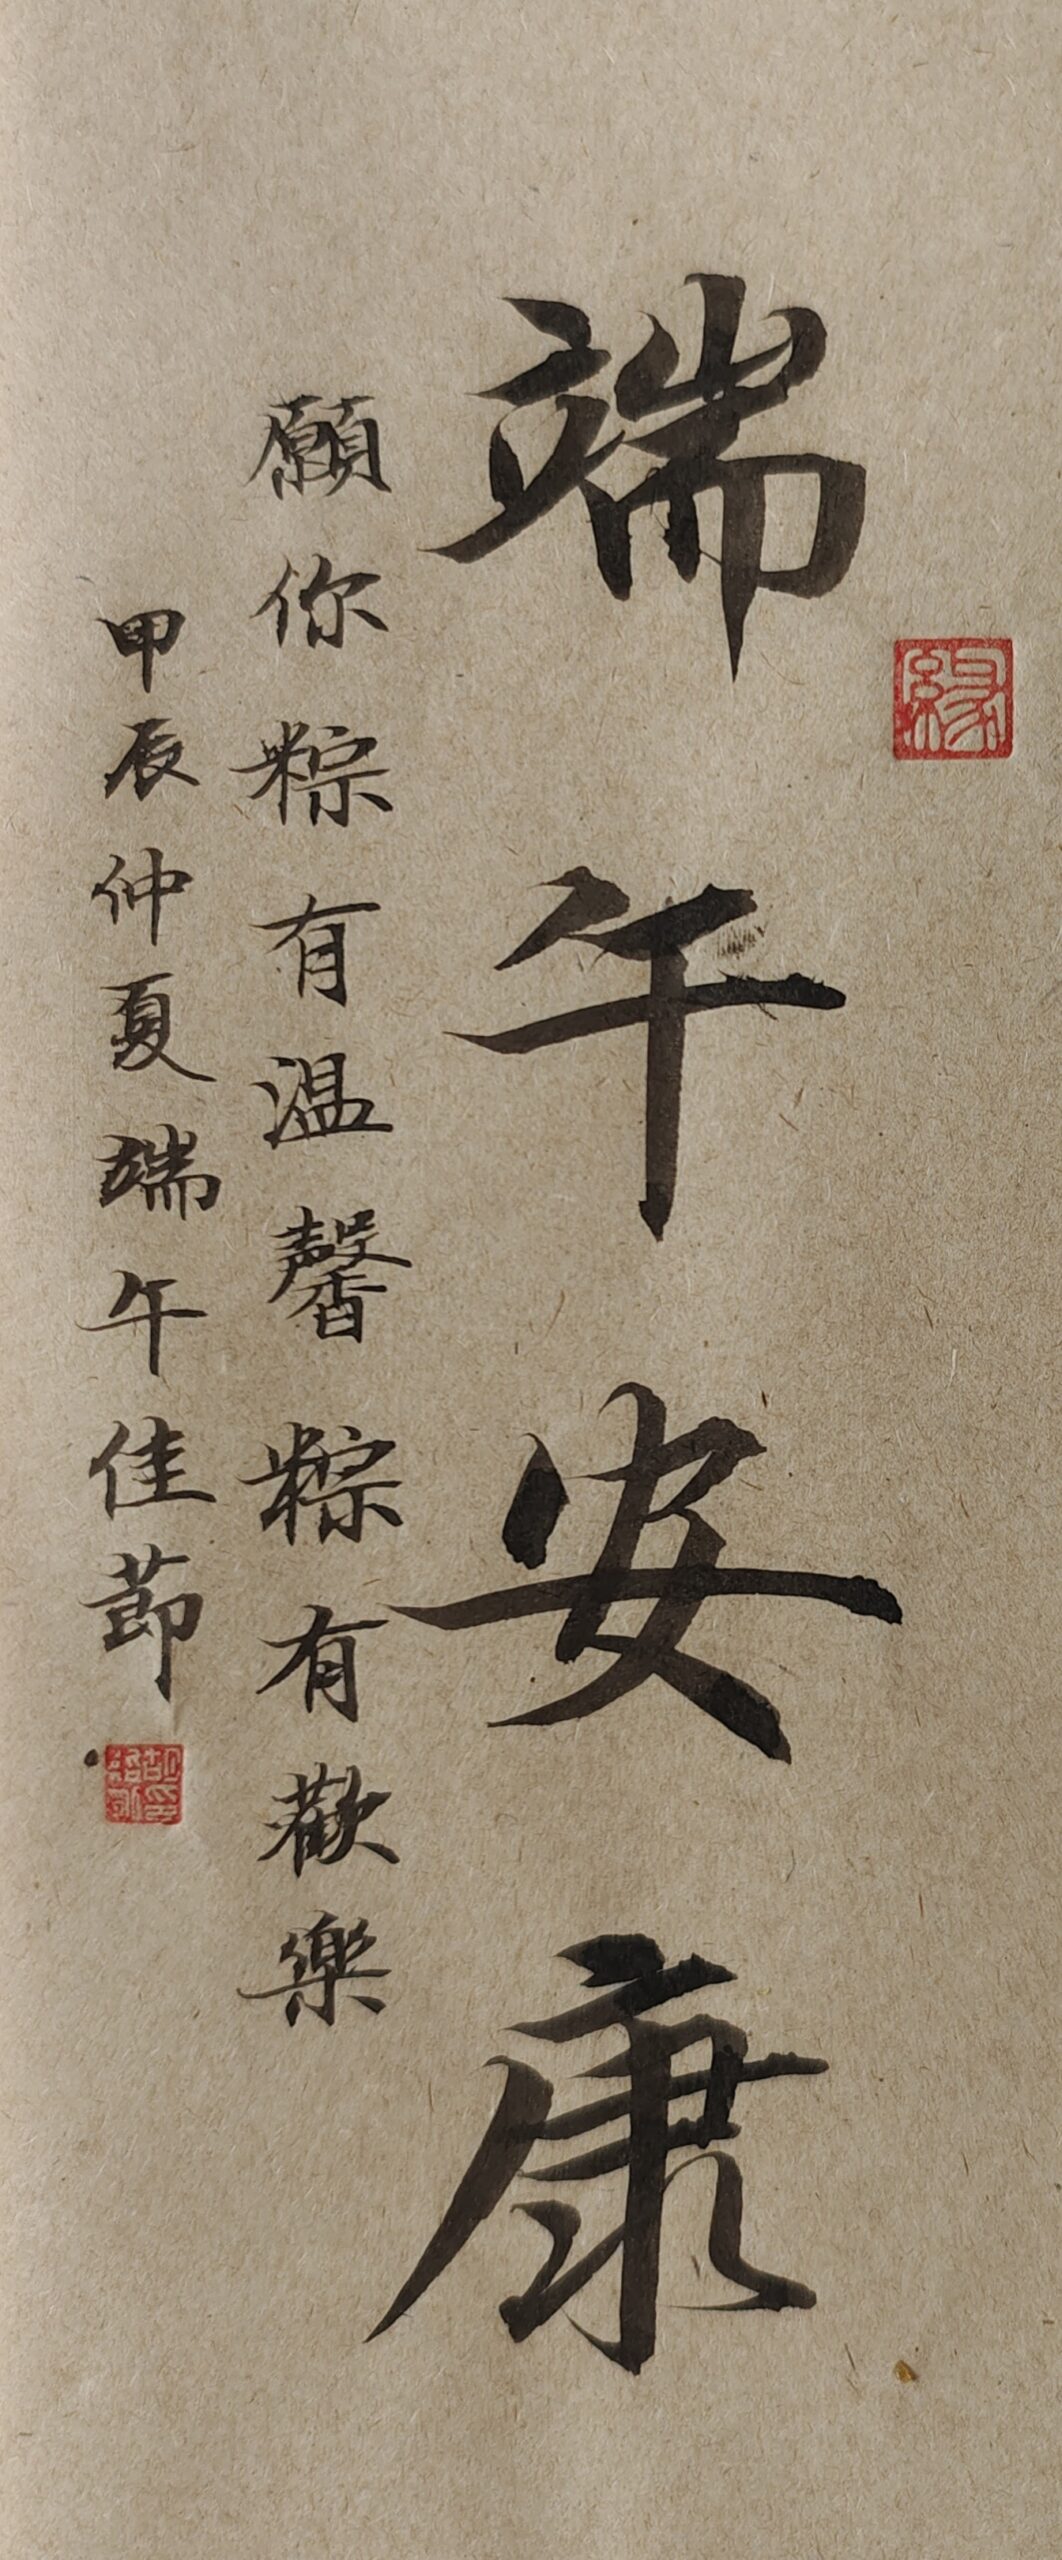 端午安康
願你粽有温馨粽有歡樂
甲辰仲夏端午佳節
緣